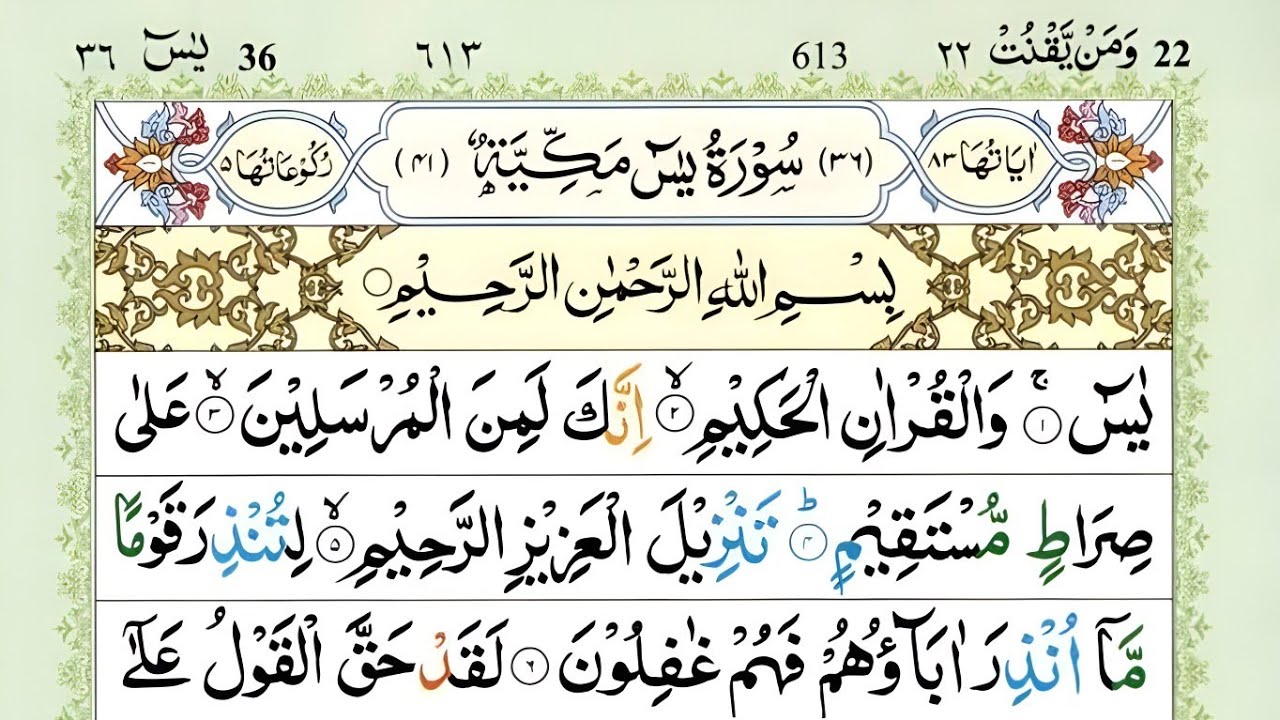 22 وَمَنْ يَّقْنُتْ ٢٢ 613 ٦١٣ 36 يٰسٓ ٣٦
اٰيَاتُهَا ٨٣ (٣٦) سُوْرَةُ يٰسٓ مَكِّيَّةٌ (٤١) رُكُوْعَاتُهَا ٥
بِسْمِ اللّٰهِ الرَّحْمٰنِ الرَّحِيْمِ
يٰسٓ ۚ ١ وَالْقُرْاٰنِ الْحَكِيْمِ ۙ ٢ اِنَّكَ لَمِنَ الْمُرْسَلِيْنَ ۙ ٣ عَلٰى
صِرَاطٍ مُّسْتَقِيْمٍ ؕ ٤ تَنْزِيْلَ الْعَزِيْزِ الرَّحِيْمِ ۙ ٥ لِتُنْذِرَ قَوْمًا
مَّاۤ اُنْذِرَ اٰبَآؤُهُمْ فَهُمْ غٰفِلُوْنَ ٦ لَقَدْ حَقَّ الْقَوْلُ عَلٰۤى